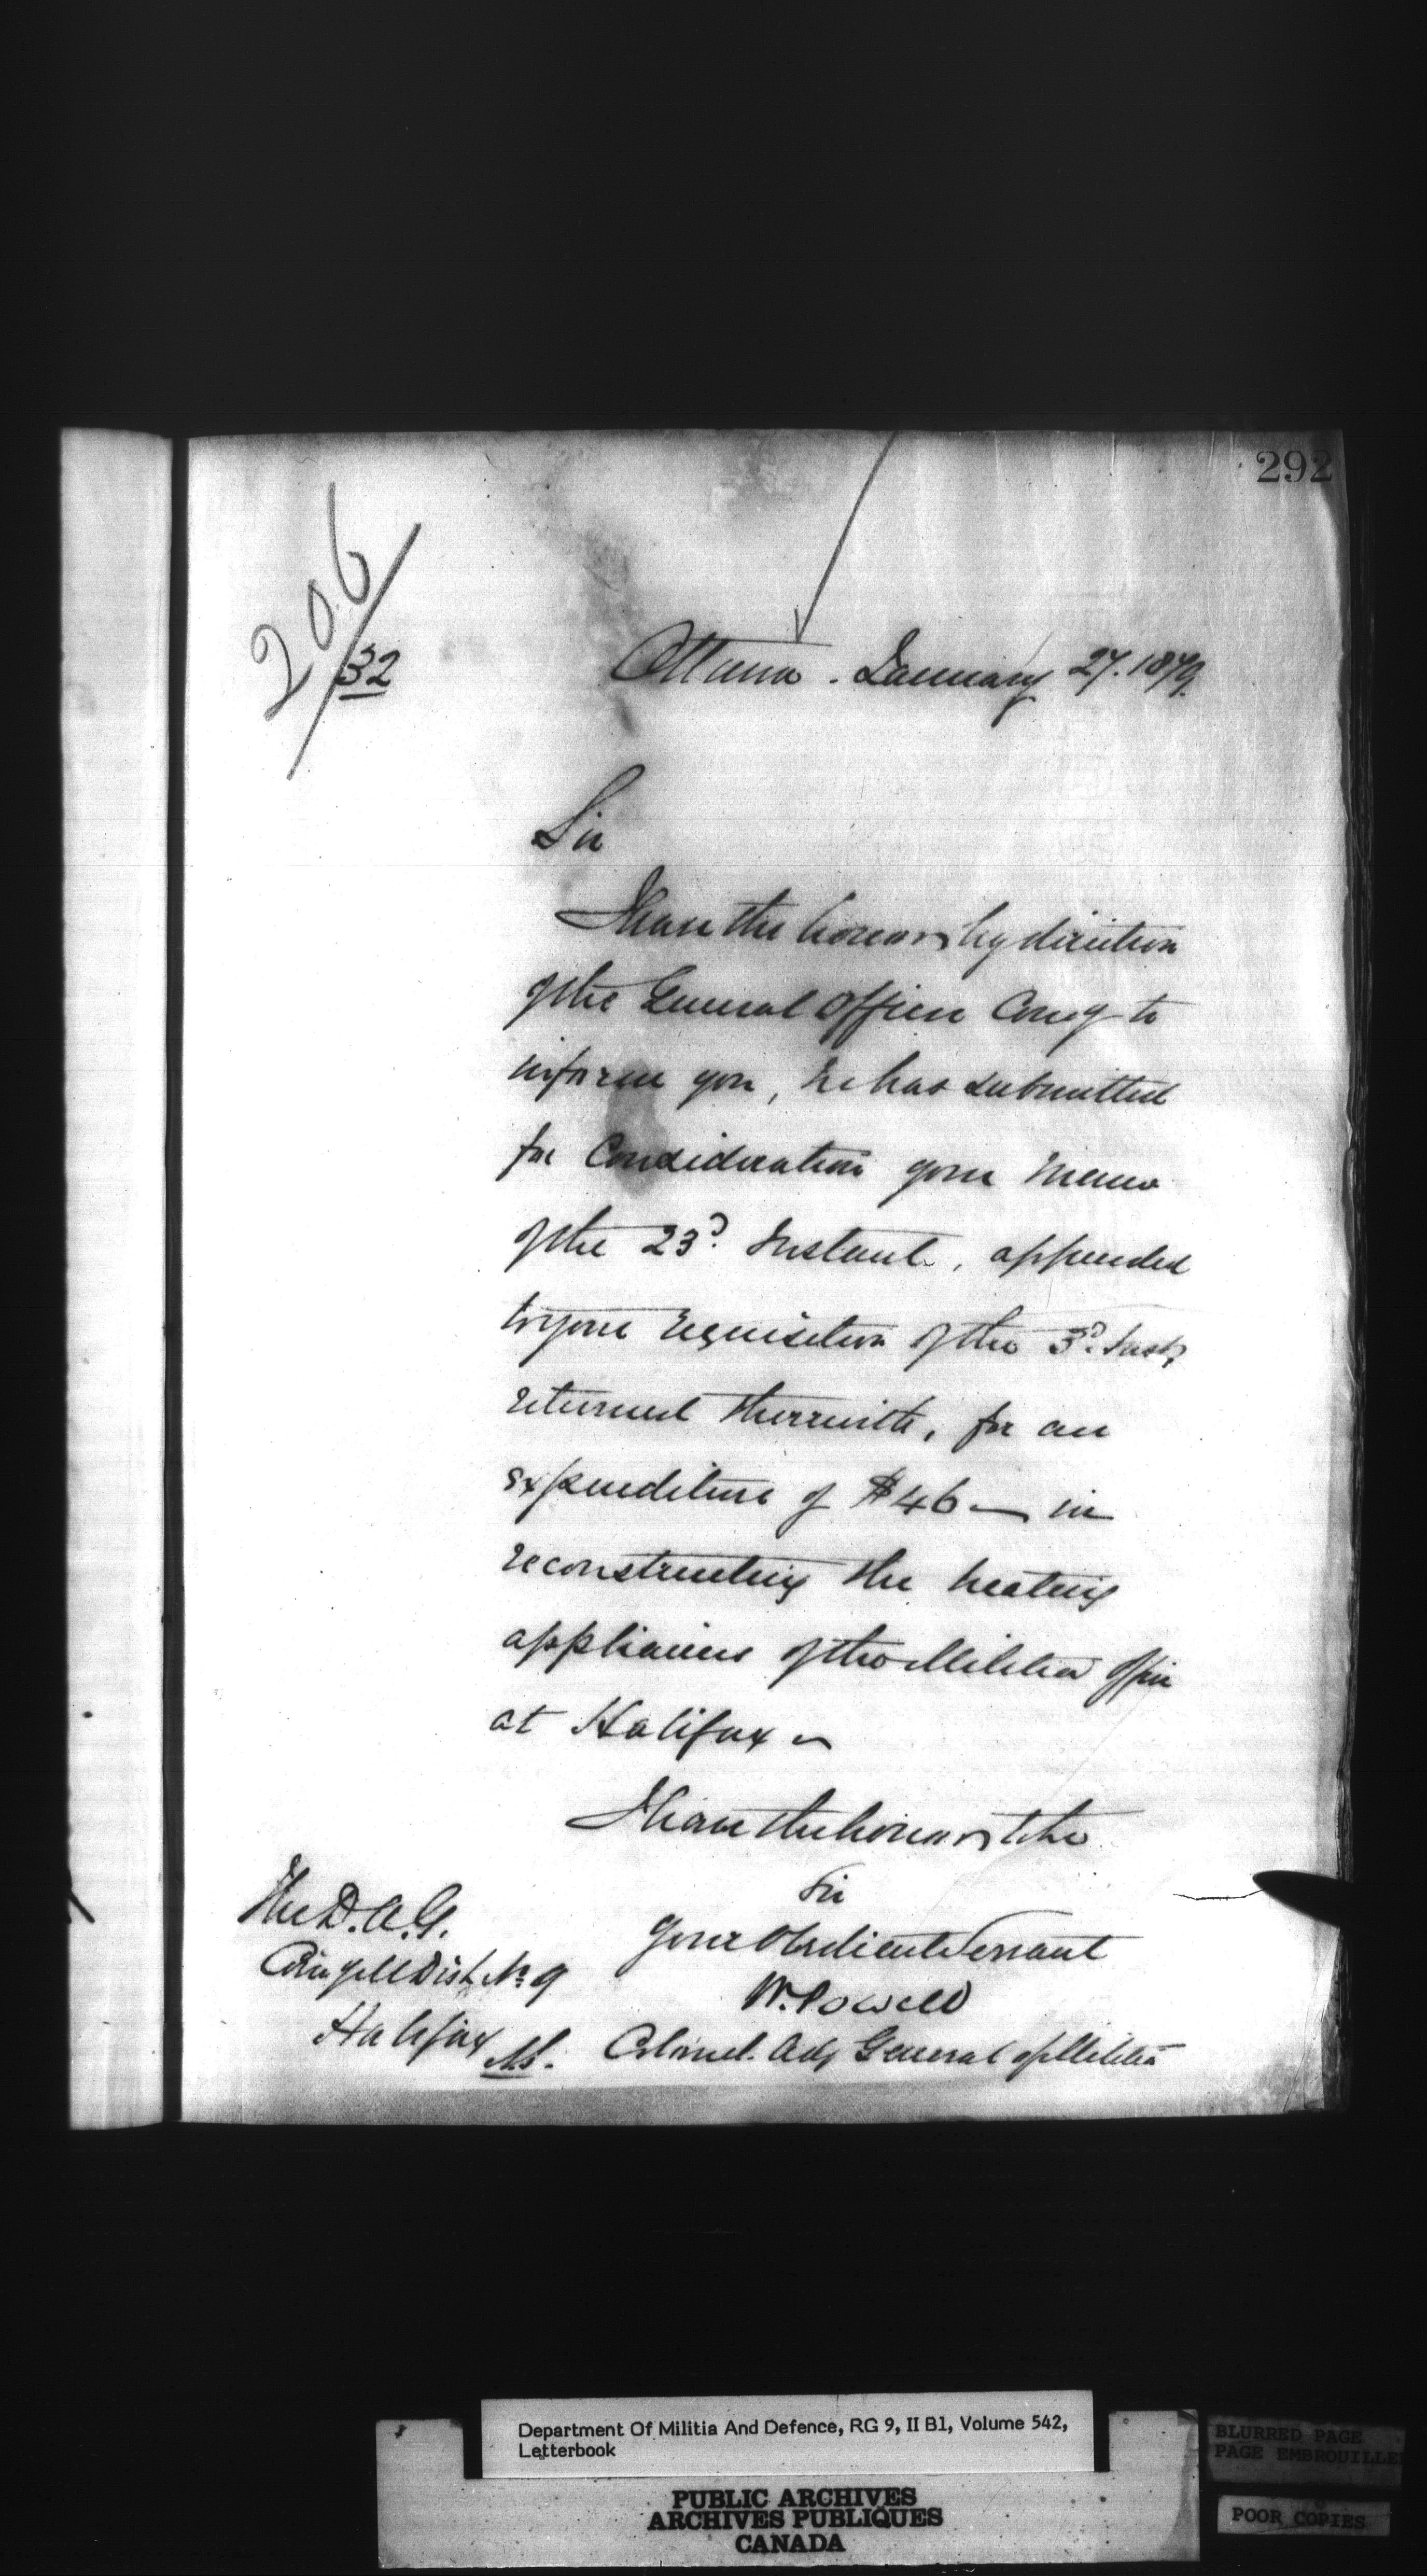 292
206
32
Ottawa. January 27. 1879.
Sir
I have the honor, by direction
of the General Officer Comg to
inform you, he has submitted
for Consideration your memo
of the 23d. Instant, appended
to your requisition of the 3d. Inst,
returned therewith, for an
expenditure of $46— in
reconstructing the heating
appliances of the Militia Office
at Halifax
I have the honor to be
Sir
Your Obedient Servant
W. Powell
Colonel. Adj General of Militia
The D.A.G.
Comg M Dist No 9
Halifax
N.S.
Department Of Militia And Defence, RG 9, II B1, Volume 542,
Letterbook
PUBLIC ARCHIVES
ARCHIVES PUBLIQUES
CANADA
BLURRED PAGE
PAGE EMBROUILLE
POOR COPIES